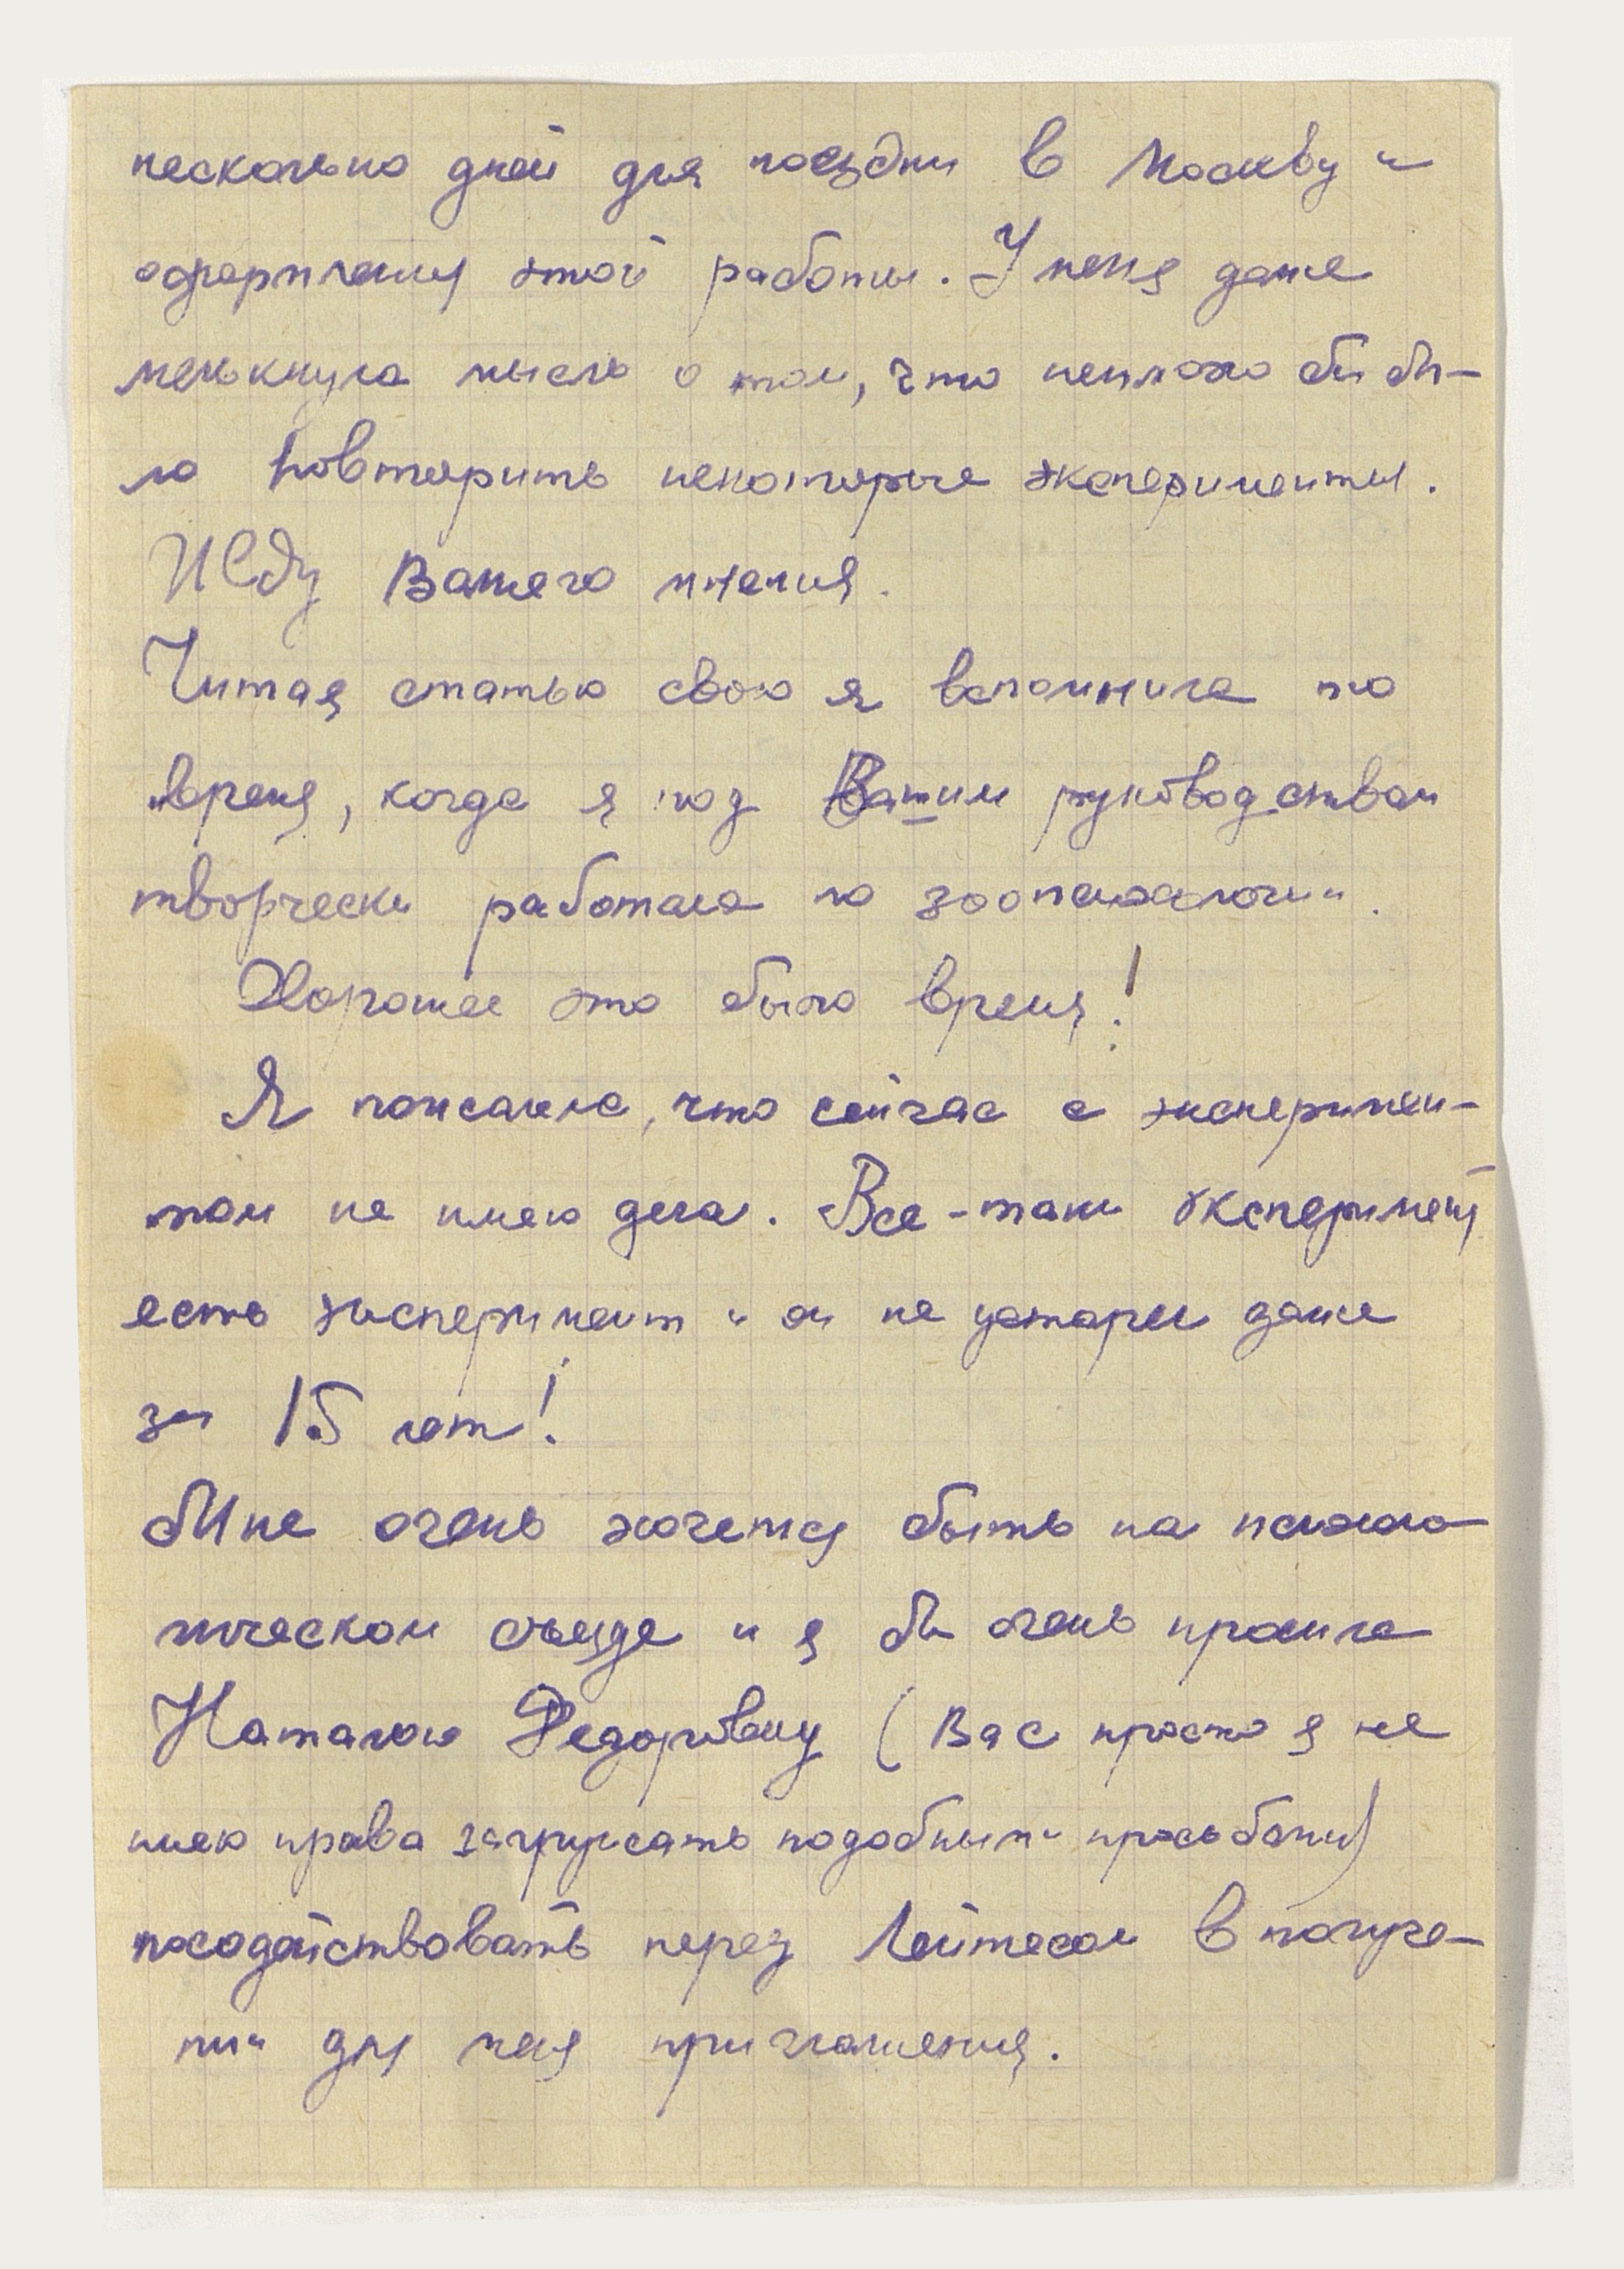 несколько дней для поездки в Москву и
оформления этой работы. У меня даже
мелькнула мысль о том, что неплохо бы бы-
ло повторить некоторые эксперименты.
Жду Вашего мнения.
Читая статью свою я вспомнила то
время, когда я под Вашим руководством
творчески работала по зоопсихологии.
Хорошее это было время!
Я пожалела, что сейчас с эксперимен-
том не имею дела. Все-таки эксперимент
есть эксперимент и он не устарел даже
за 15 лет!
Мне очень хочется быть на психоло-
гическом съезде и я бы очень просила
Наталью Федоровну (Вас просто я не
имею права загружать подобными просьбами)
посодействовать перед Лейтесом в получе-
нии для меня приглашения.